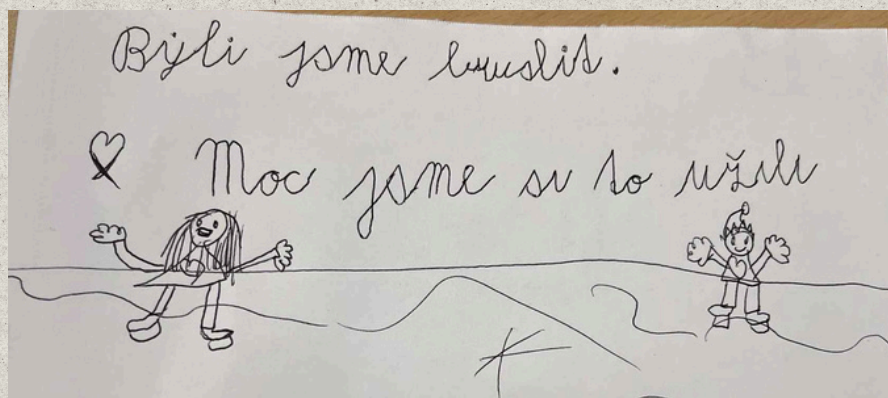 Býli jsme bruslit.
Moc jsme si to užili